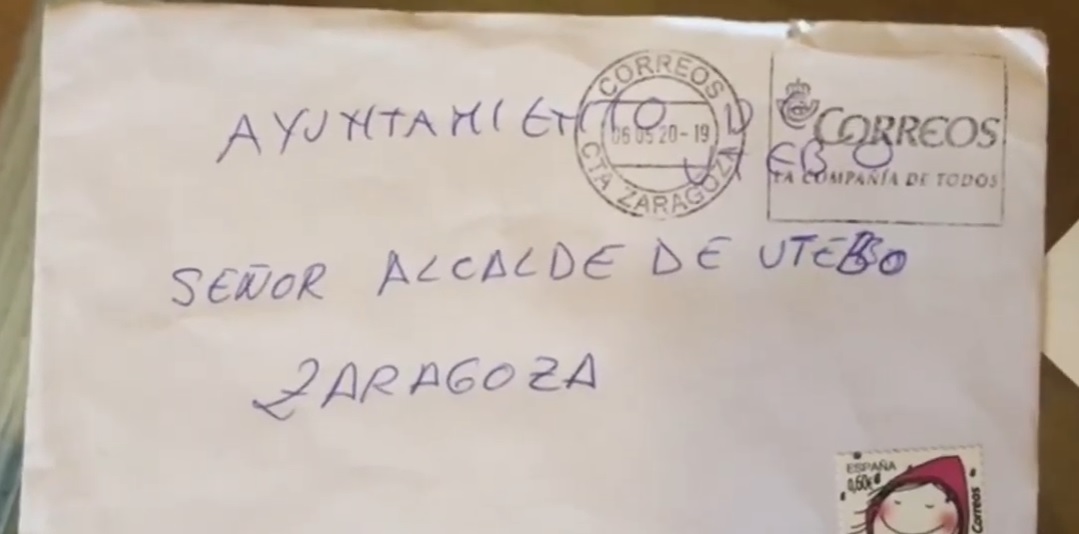 AYUNTAMIENTO D
UTEBO
SEÑOR ALCALDE DE UTEBO
ZARAGOZA
CORREOS
06 05 20-19
CTA ZARAGOZA
CORREOS
LA COMPAÑÍA DE TODOS
ESPAÑA
0,60€
Correos